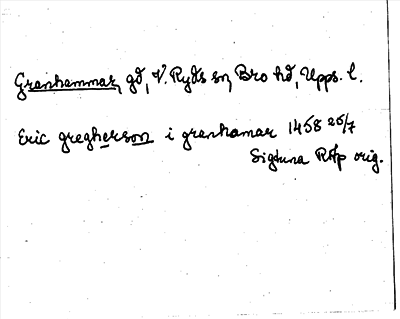 Granhammar, gd, V. Ryds sn, Bro hd, Upps. l.
Eric gregherson i granhamar 1458 25/7
Sigtuna RAp orig.